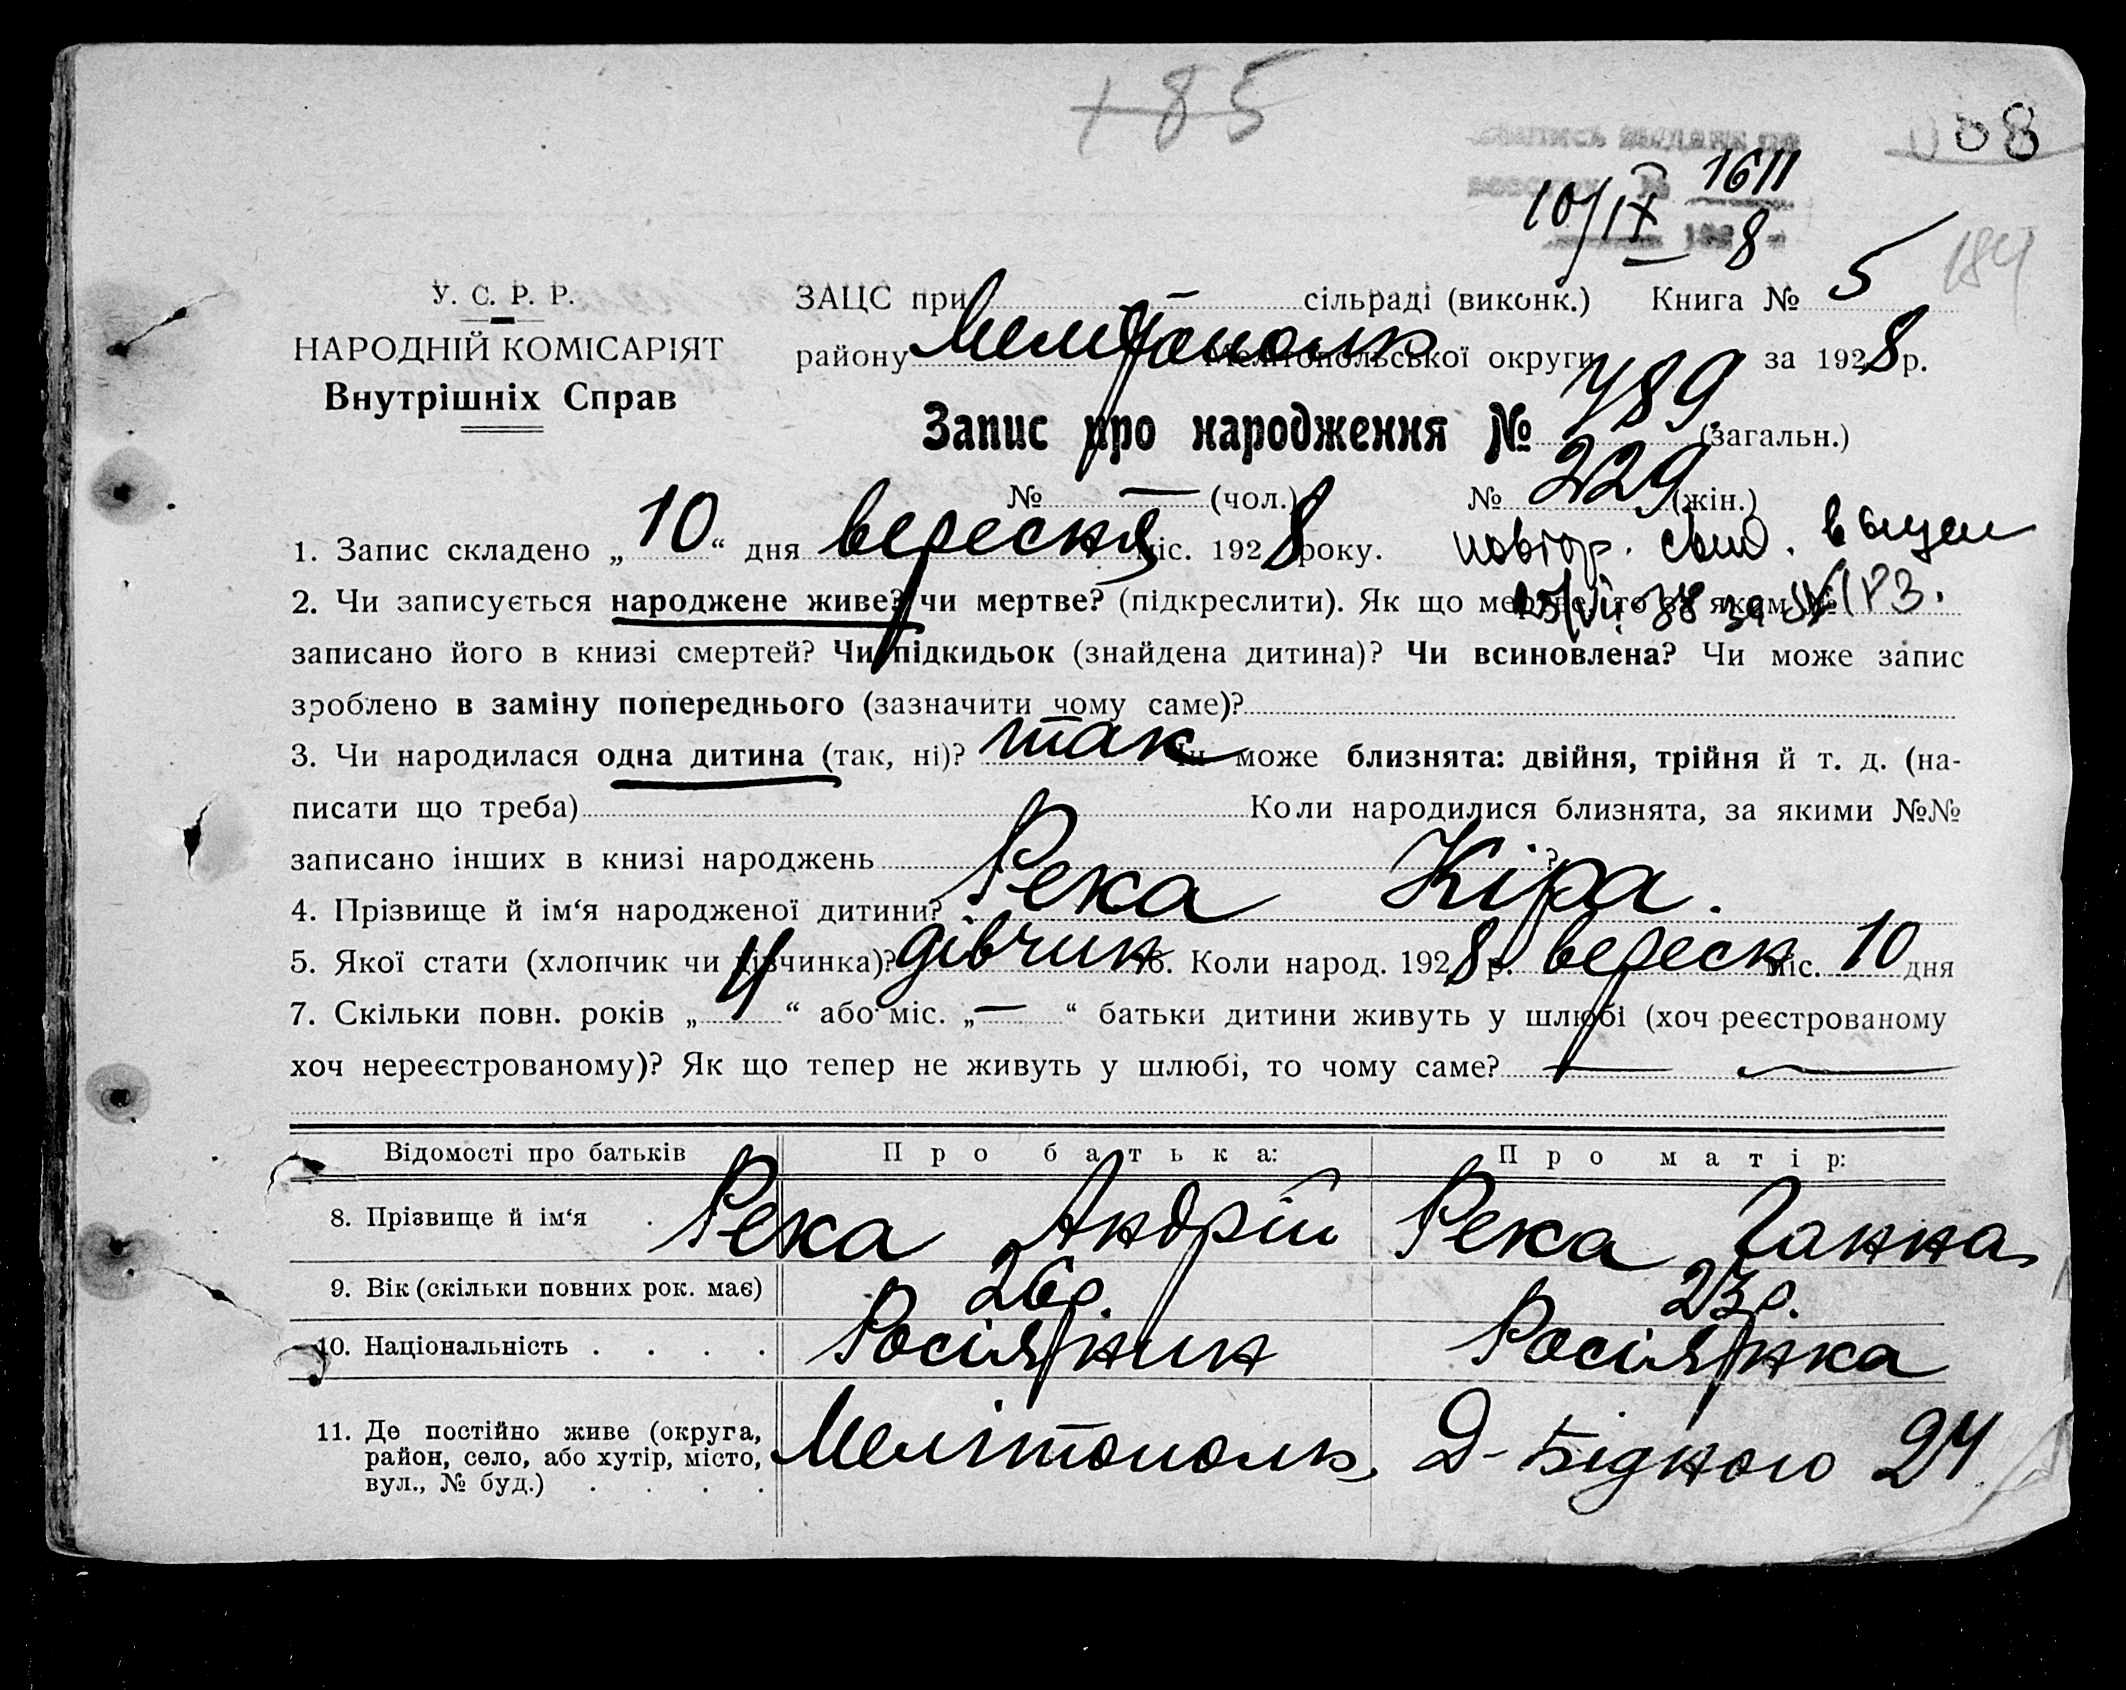 +85
088
10/IX 1611
1928
184
У. С. Р. Р.
НАРОДНІЙ КОМІСАРІЯТ
Внутрішніх Справ
ЗАЦС при сільраді (виконк.) Книга № 5
району Мелітополь Мелітопольської округи за 1928 р.
Запис про народження № 489 (загальн.)
№ — (чол.) № 229 (жін.)
1. Запис складено „10“ дня вересня міс. 1928 року.
повтор. свид. выдан
2. Чи записується народжене живе? чи мертве? (підкреслити). Як що мертве, то за яким №
записано його в книзі смертей? Чи підкидьок (знайдена дитина)? Чи всиновлена? Чи може запис
зроблено в заміну попереднього (зазначити чому саме)?
3. Чи народилася одна дитина (так, ні)? так Чи може близнята: двійня, трійня й т. д. (на-
писати що треба) Коли народилися близнята, за якими №№
записано інших в книзі народжень ?
4. Прізвище й ім‘я народженої дитини? Река Кіра.
5. Якої стати (хлопчик чи дівчинка)? дівчин 6. Коли народ. 1928 р. вересн міс. 10 дня
7. Скільки повн. років „4“ або міс. „—“ батьки дитини живуть у шлюбі (хоч реєстрованому
хоч нереєстрованому)? Як що тепер не живуть у шлюбі, то чому саме? — —
Відомості про батьків Про батька: Про матір:
8. Прізвище й ім‘я . Река Андрій Река Ганна
9. Вік (скільки повних рок. має) 26 р. 23 р.
10. Національність . . . . Росіянин Росіянка
11. Де постійно живе (округа,
район, село, або хутір, місто,
вул., № буд.) . . . .
Мелітополь, Д-Бідного 24